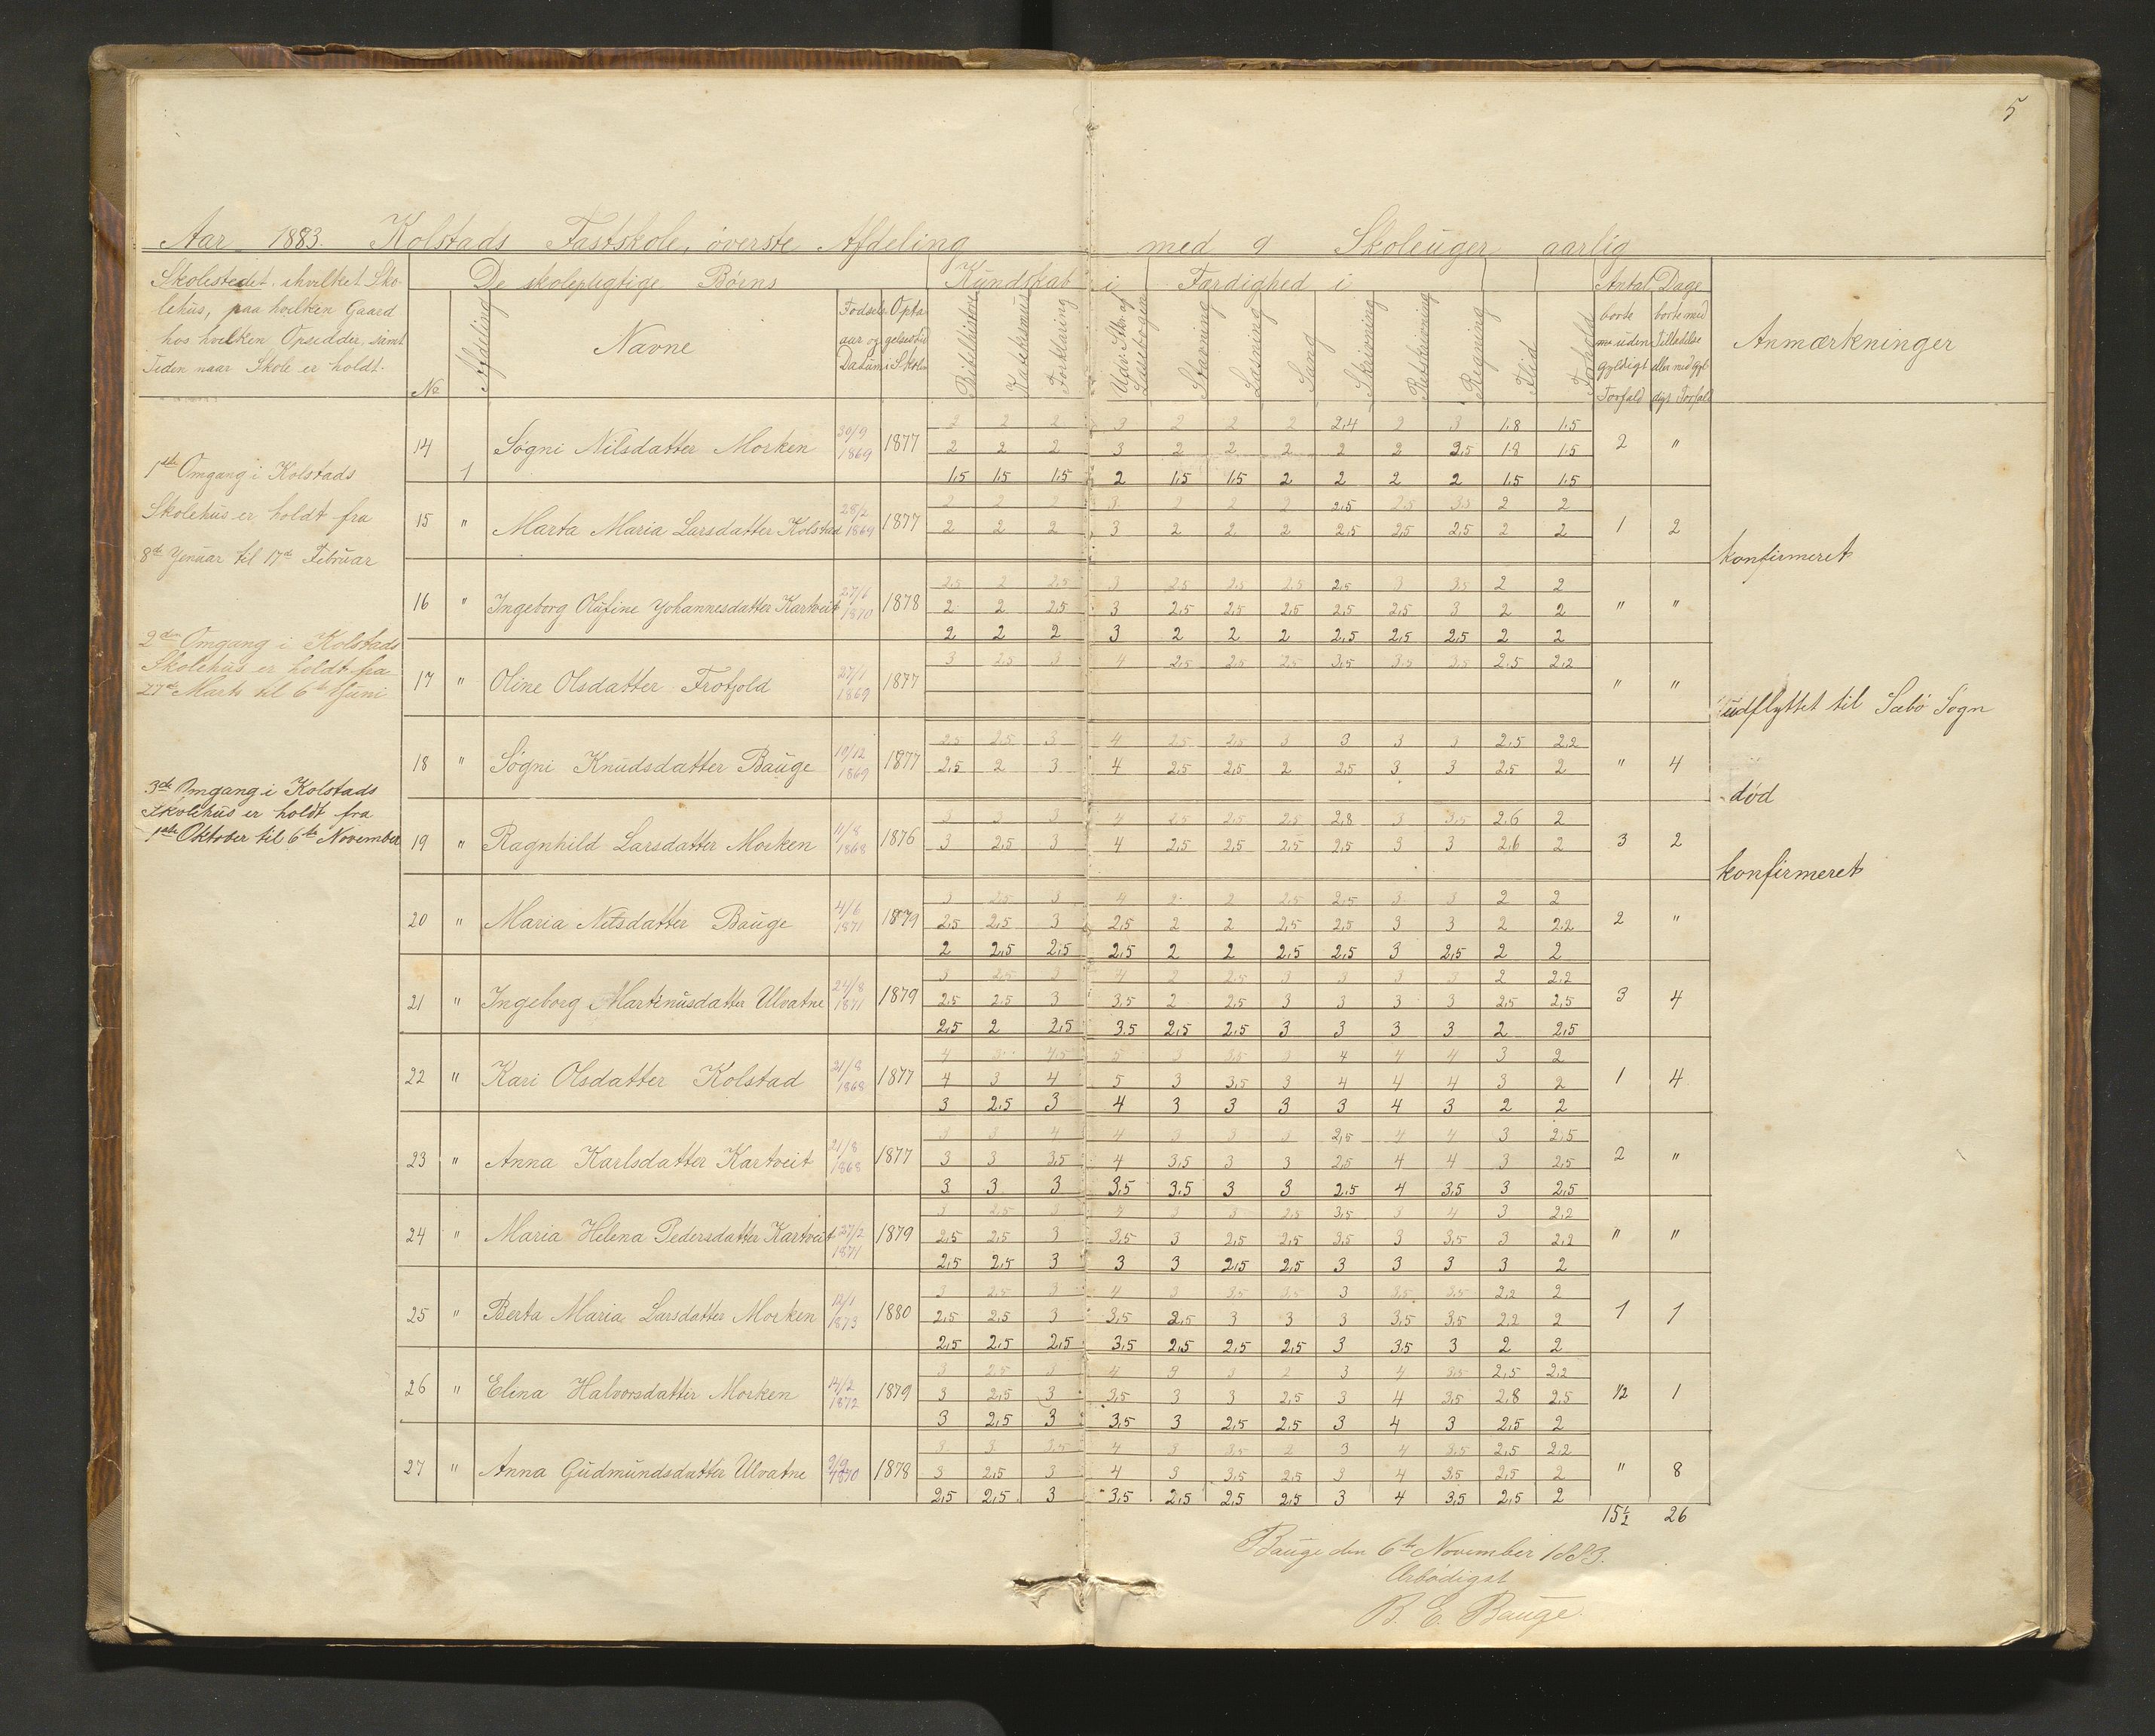 5
Aar 1883. Kolstads Fastskole, överste Afdeling med 9 Skoleuger aarlig
Skolestedet, ihvilket Sko-
lehus, paa hvilken Gaard
hos hvilken Opsidder, samt
Tiden naar Skole er holdt.
De skolepligtige Börns
Kundskab i
Færdighed i
Antal Dage
No
Afdeling
Navne
Födsels-
aar og
Datum
Opta-
gelsestid
i Skolen
Bibelhistorie
Katekismus
Forklaring
Udv. Stkr. af
Læsebogen
Stavning
Læsning
Sang
Skrivning
Retskrivning
Regning
Flid
Forhold
borte
uden
gyldigt
Forfald
borte med
Tilladelse
eller med gyl-
digt Forfald
Anmærkninger
1ste Omgang i Kolstads
Skolehus er holdt fra
8de Januar til 17de Februar
2den Omgang i Kolstads
Skolehus er holdt fra
27de Marts til 6te Juni
3die Omgang i Kolstads
Skolehus er holdt fra
1ste Oktober til 6te November
14 1 Sögni Nilsdatter Morken 30/9 1869 1877 2 "
2 2 2 3 2 2 2 2.4 2 3 1.8 1.5
2 2 2 3 2 2 2 2 2 2.5 1.8 1.5
1.5 1.5 1.5 2 1.5 1.5 2 2 2 2 1.5 1.5
15 " Marta Maria Larsdatter Kolstad 28/2 1869 1877 1 2 konfirmeret
2 2 2 3 2 2 2 2.5 2.5 3.5 2 2
2 2 2 3 2 2 2 2.5 2.5 2.5 2 2
16 " Ingeborg Olufine Johannesdatter Kartveit 27/6 1870 1878 " "
2.5 2 2.5 3 2.5 2.5 2.5 2.5 3 3.5 2 2
2 2 2.5 3 2.5 2.5 2.5 2.5 2.5 3 2 2
2 2 2 3 2 2 2 2.5 2.5 2.5 2 2
17 " Oline Olsdatter Trotjold 27/1 1869 1877 " " udflyttet til Sæbö Sogn
3 2.5 3 4 2.5 2.5 2.5 3.5 3.5 3.5 2.5 2.2
18 " Sögni Knudsdatter Bauge 19/12 1869 1877 " 4 död
2.5 2.5 3 4 2.5 2.5 3 3 3 3 2.5 2.2
2.5 2 3 4 2.5 2.5 2 2.5 3 3 2.5 2
19 " Ragnhild Larsdatter Morken 11/8 1868 1876 3 2 konfirmeret
3 3 3 4 2.5 2.5 2.5 2.8 3 3.5 2.6 2
3 2.5 3 4 2.5 2.5 2.5 2.5 3 3 2.6 2
20 " Maria Nilsdatter Bauge 4/6 1871 1879 2 "
3 2.5 3 4 2 2 2.5 2.5 3 3 2 2
2.5 2.5 3 2.5 2 2 2.5 2.5 3 3 2 2.2
2 2.5 2.5 2.5 2 2 2.5 2.5 3 2.5 2 2
21 " Ingeborg Martinusdatter Ulvatne 24/8 1871 1879 3 4
3 2.5 3 4 2 2.5 3 3 3 3 2 2.2
2.5 2.5 3 3.5 2 2.5 3 3 3 3 2.5 2.5
2.5 2 2.5 3.5 2.5 2.5 3 3 3 3 2 2.5
22 " Kari Olsdatter Kolstad 21/8 1868 1877 1 4
4 3 4.5 5 3 3.5 3 4 4 4 3 2
4 3 4 5 3 3.5 3 4 4 4 3 2
3 2.5 3 4 3 3 3 3 4 3 2 2
23 " Anna Karlsdatter Kartveit 21/8 1868 1877 2 "
3 3 4 4 3 3 3 2.5 4 4 3 2.5
3 3 3.5 4 3.5 3 3 2.5 4 4 3 2.5
3 3 3 3.5 3.5 3 3 2.5 4 3.5 3 2.5
24 " Maria Helena Pedersdatter Kartveit 27/2 1871 1879 " "
3 2.5 3 4 3 3 2.5 3.5 3 4 3 2.2
2.5 2.5 3 3.5 3 2.5 2.5 3.5 3 3.5 3 2.2
2.5 2.5 3 3 3 2.5 2.5 3 3 3 3 2
25 " Berta Maria Larsdatter Morken 12/1 1873 1880 1 1
3 2.5 3 4 3 3.5 3.5 3 3.5 3.5 2.2 2
2.5 2.5 3 3.5 2.5 3 3 3 3.5 3.5 2.2 2
2.5 2.5 2.5 3.5 2.5 2.5 2.5 3 3.5 3 2 2
26 " Elina Halvorsdatter Morken 14/2 1872 1879 1/2 1
3 2.5 3 4 3 3 2 3 4 3.5 2.5 2.2
3 2.5 3 3.5 3 3 2.5 3 4 3.5 2.8 2.5
3 2.5 3 3.5 3 2.5 2.5 3 4 3 2.5 2
27 " Anna Gudmundsdatter Ulvatne 9/9 1870 1878 " 8
3 3 3.5 4 3 3.5 2 3 4 3.5 2.5 2.2
3 2.5 3 4 3 3.5 2.5 3 4 3.5 2.5 2
2.5 2.5 3 3.5 2.5 2.5 2.5 3 4 3.5 2.5 2
15 1/2 26
Bauge den 6te November 1883.
Ærbödigst
B. E. Bauge.